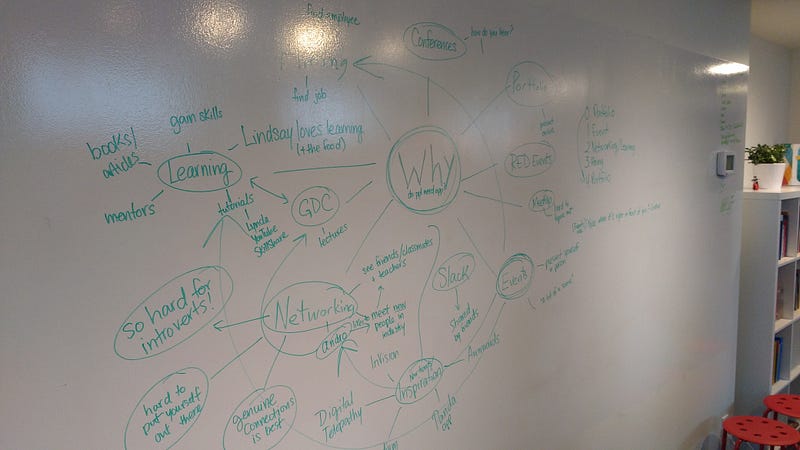 find employee
Hiring
find job
Conferences
how do you hear?
Portfolio
present
gain skills
books/
articles
Learning
Lindsay loves learning
(+ the food)
mentors
tutorials
Lynda
YouTube
Skillshare
GDC
lectures
Why
do ppl need app?
RED Events
Meetup
hard to
figure out
0 Portfolio
1 Event
2 Networking/Learning
3 Hiring
4 Portfolio
Events
present yourself
in person
Slack
Shared
by
see friends/classmates
+ teachers
Networking
meet new
people in
industry
so hard for
introverts!
hard to
put yourself
out there
genuine
connections
is best
InVision
Inspiration
Awwwards
Digital
Telepathy
Panda
app